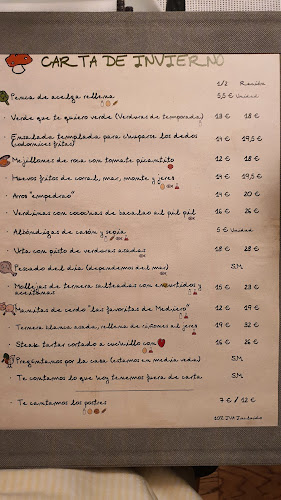 CARTA DE INVIERNO
1/2 Ración
Penca de acelga rellena 5,5 € Unidad
· Verde que te quiero verde (Verduras de temporada) 13 € 18 €
· Ensalada templada para chuparse los dedos
(codornices fritas) 14 € 19,5 €
Mejillones de roca con tomate picantito 12 € 18 €
· Huevos fritos de corral, mar, monte y jerez 14 € 19,5 €
· Arroz "empedrao" 14 € 20 €
· Verdinas con cocochas de bacalao al pil pil 16 € 26 €
· Albóndigas de cazón y sepia 5 € Unidad
· Urta con pisto de verduras asadas 18 € 28 €
Pescado del día (dependemos del mar) S.M.
· Mollejas de ternera salteadas con encurtidos y
aceitunas 15 € 23 €
Manitas de cerdo "las favoritas de Modesto" 12 € 19 €
· Ternera blanca asada, rellena de riñones al jerez 19 € 32 €
· Steak tartar cortado a cuchillo con 16 € 26 €
Pregúntanos por la casa (estamos en media veda) S.M.
· Te contamos lo que hoy tenemos fuera de carta S.M.
· Te cantamos los postres 7 € / 12 €
10% IVA Incluido